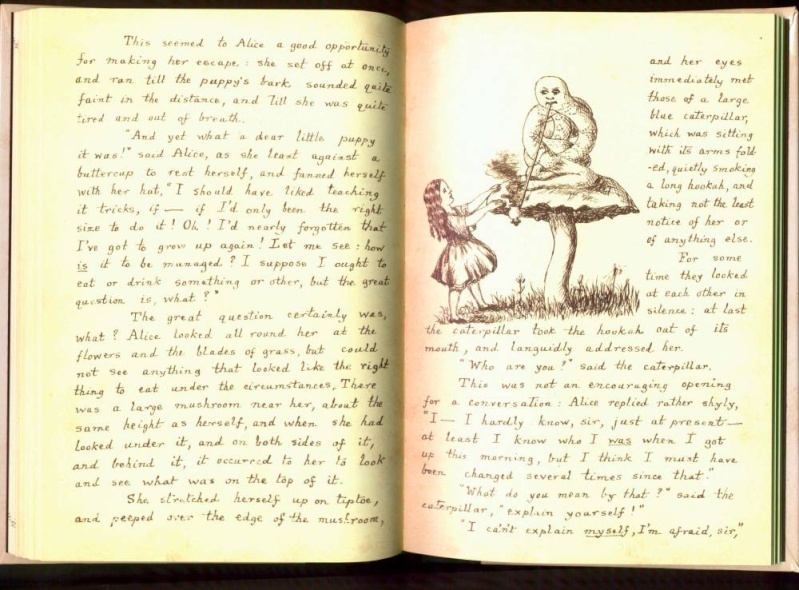 This seemed to Alice a good opportunity
for making her escape: she set off at once,
and ran till the puppy's bark sounded quite
faint in the distance, and till she was quite
tired and out of breath.
"And yet what a dear little puppy
it was!" said Alice, as she leant against a
buttercup to rest herself, and fanned herself
with her hat, "I should have liked teaching
it tricks, if — if I'd only been the right
size to do it! Oh! I'd nearly forgotten that
I've got to grow up again! Let me see: how
is it to be managed? I suppose I ought to
eat or drink something or other, but the great
question is, what?"
The great question certainly was,
what? Alice looked all round her at the
flowers and the blades of grass, but could
not see anything that looked like the right
thing to eat under the circumstances. There
was a large mushroom near her, about the
same height as herself, and when she had
looked under it, and on both sides of it,
and behind it, it occurred to her to look
and see what was on the top of it.
She stretched herself up on tiptoe,
and peeped over the edge of the mushroom,
and her eyes
immediately met
those of a large
blue caterpillar,
which was sitting
with its arms fold-
-ed, quietly smoking
a long hookah, and
taking not the least
notice of her or
of anything else.
For some
time they looked
at each other in
silence: at last
the caterpillar took the hookah out of its
mouth, and languidly addressed her.
"Who are you?" said the caterpillar.
This was not an encouraging opening
for a conversation: Alice replied rather shyly,
"I — I hardly know, sir, just at present —
at least I know who I was when I got
up this morning, but I think I must have
been changed several times since that."
"What do you mean by that?" said the
caterpillar, "explain yourself!"
"I can't explain myself, I'm afraid, sir,"